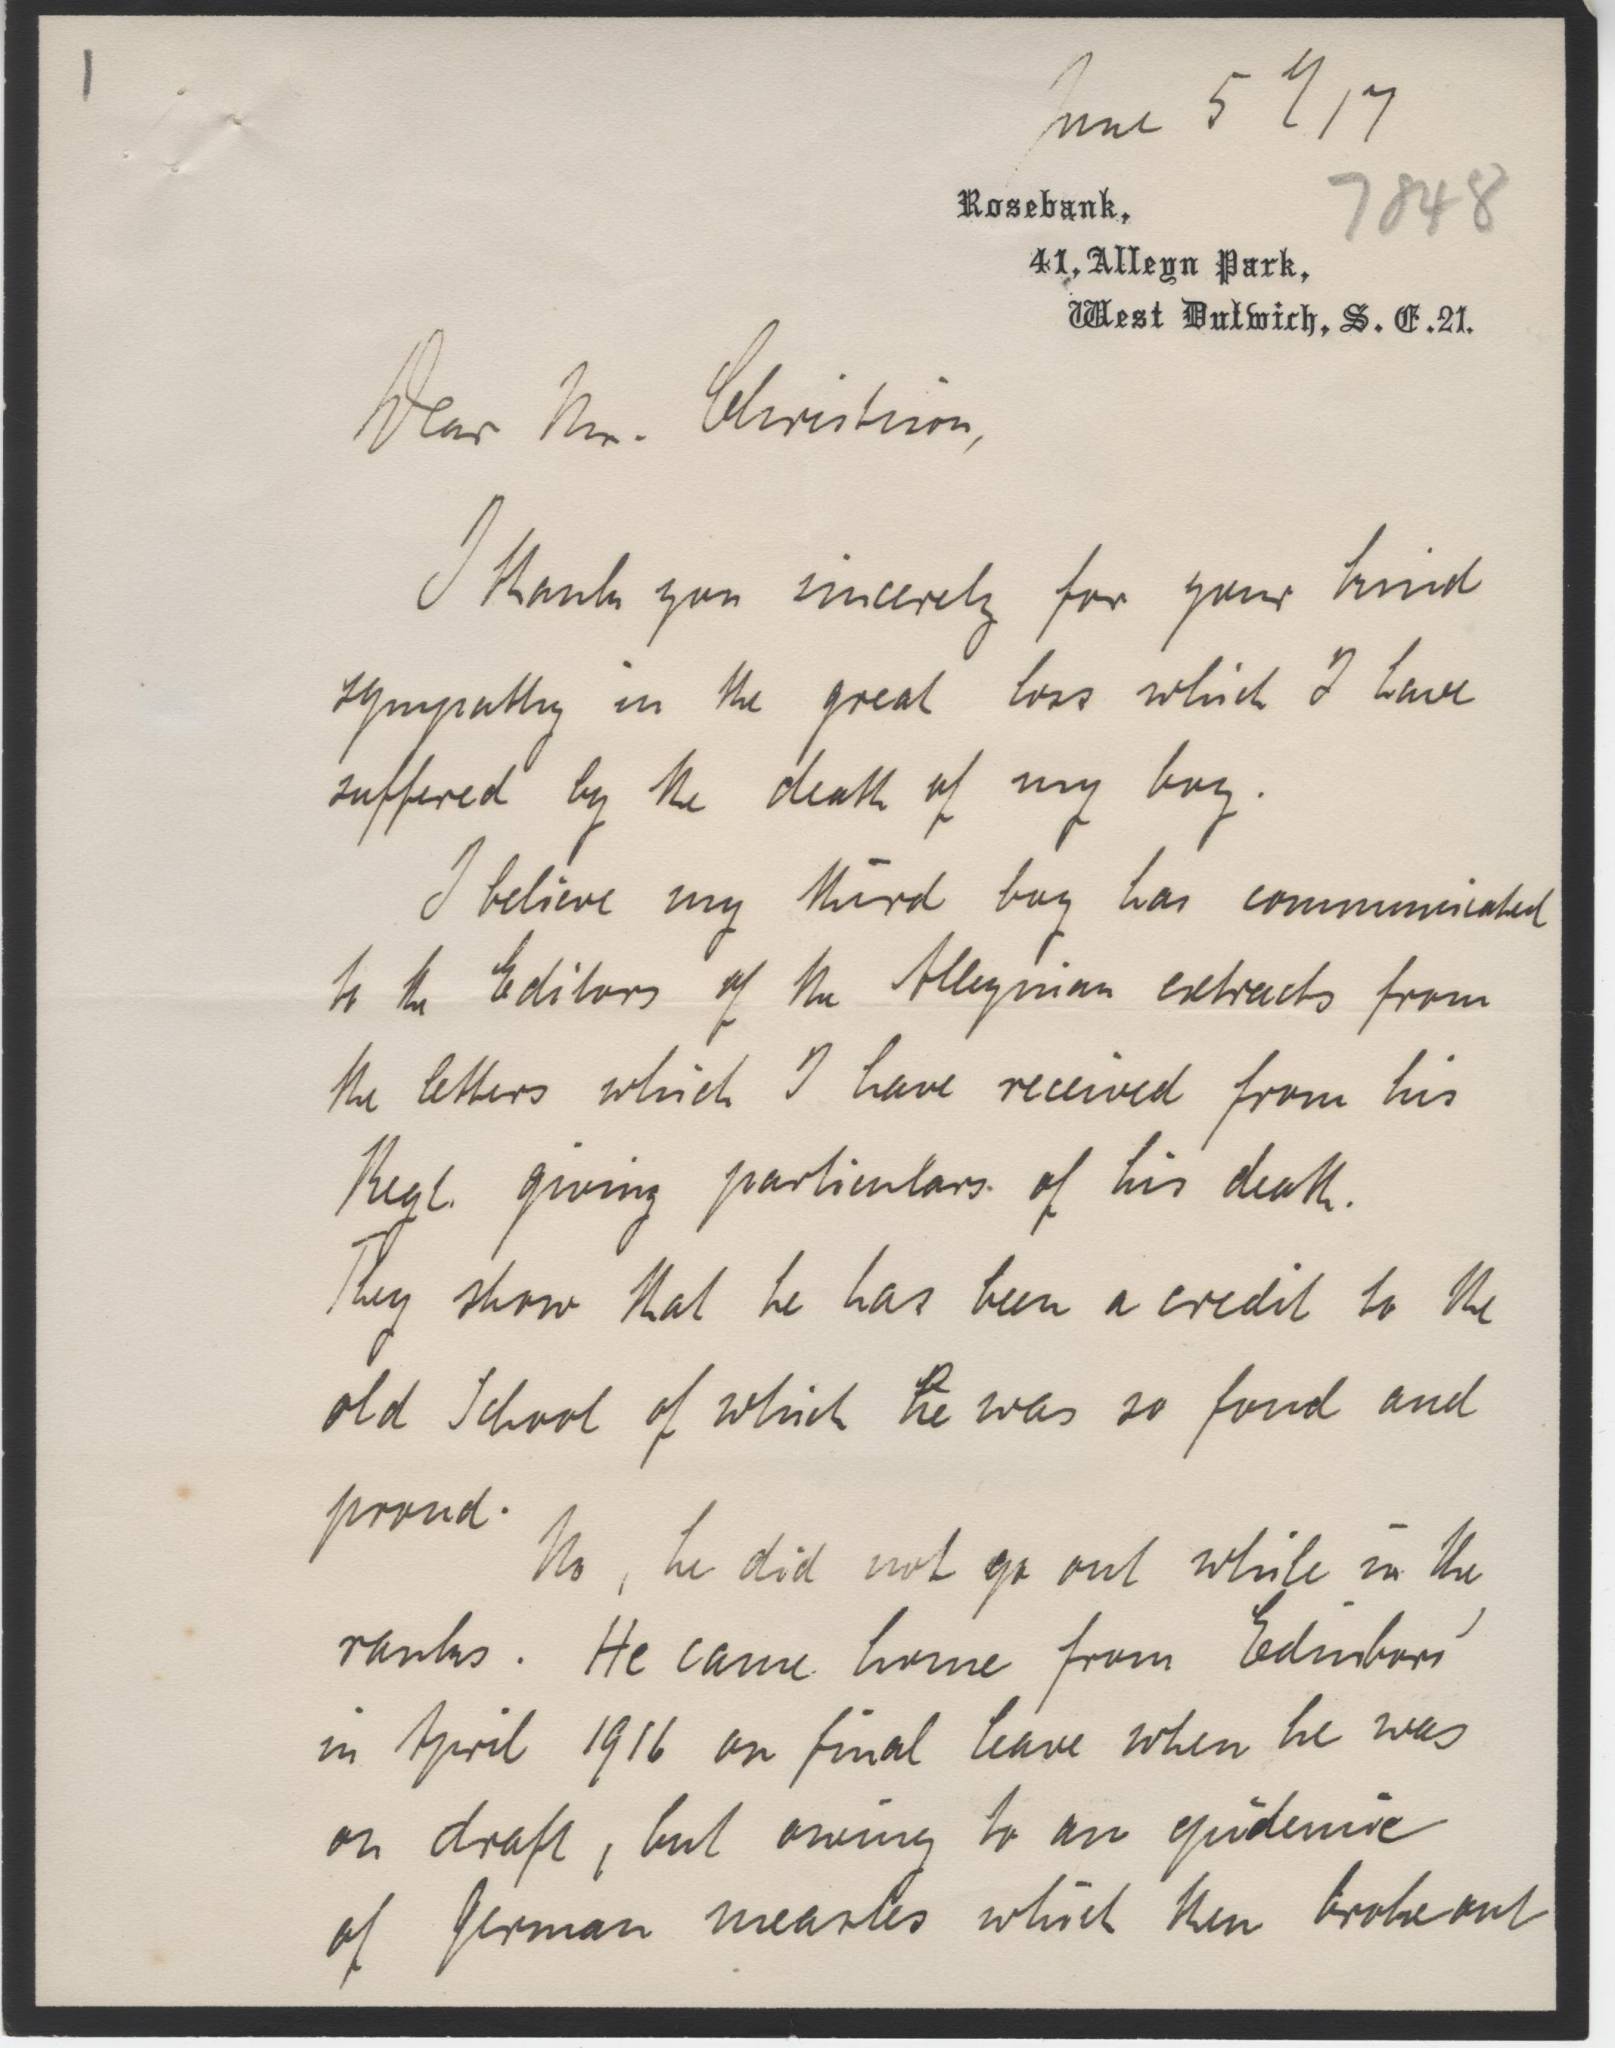 1
June 5th/17
7848
Rosebank,
41, Alleyn Park,
West Dulwich, S.E.21.
Dear Mr. Christison,
I thank you sincerely for your kind
sympathy in the great loss which I have
suffered by the death of my boy.
I believe my third boy has communicated
to the Editors of the Alleynian extracts from
the letters which I have received from his
Regt. giving particulars of his death.
They show that he has been a credit to the
old School of which he was so fond and
proud.
No, he did not go out while in the
ranks. He came home from Edinboro'
in April 1916 on final leave when he was
on draft, but owing to an epidemic
of German measles which then broke out